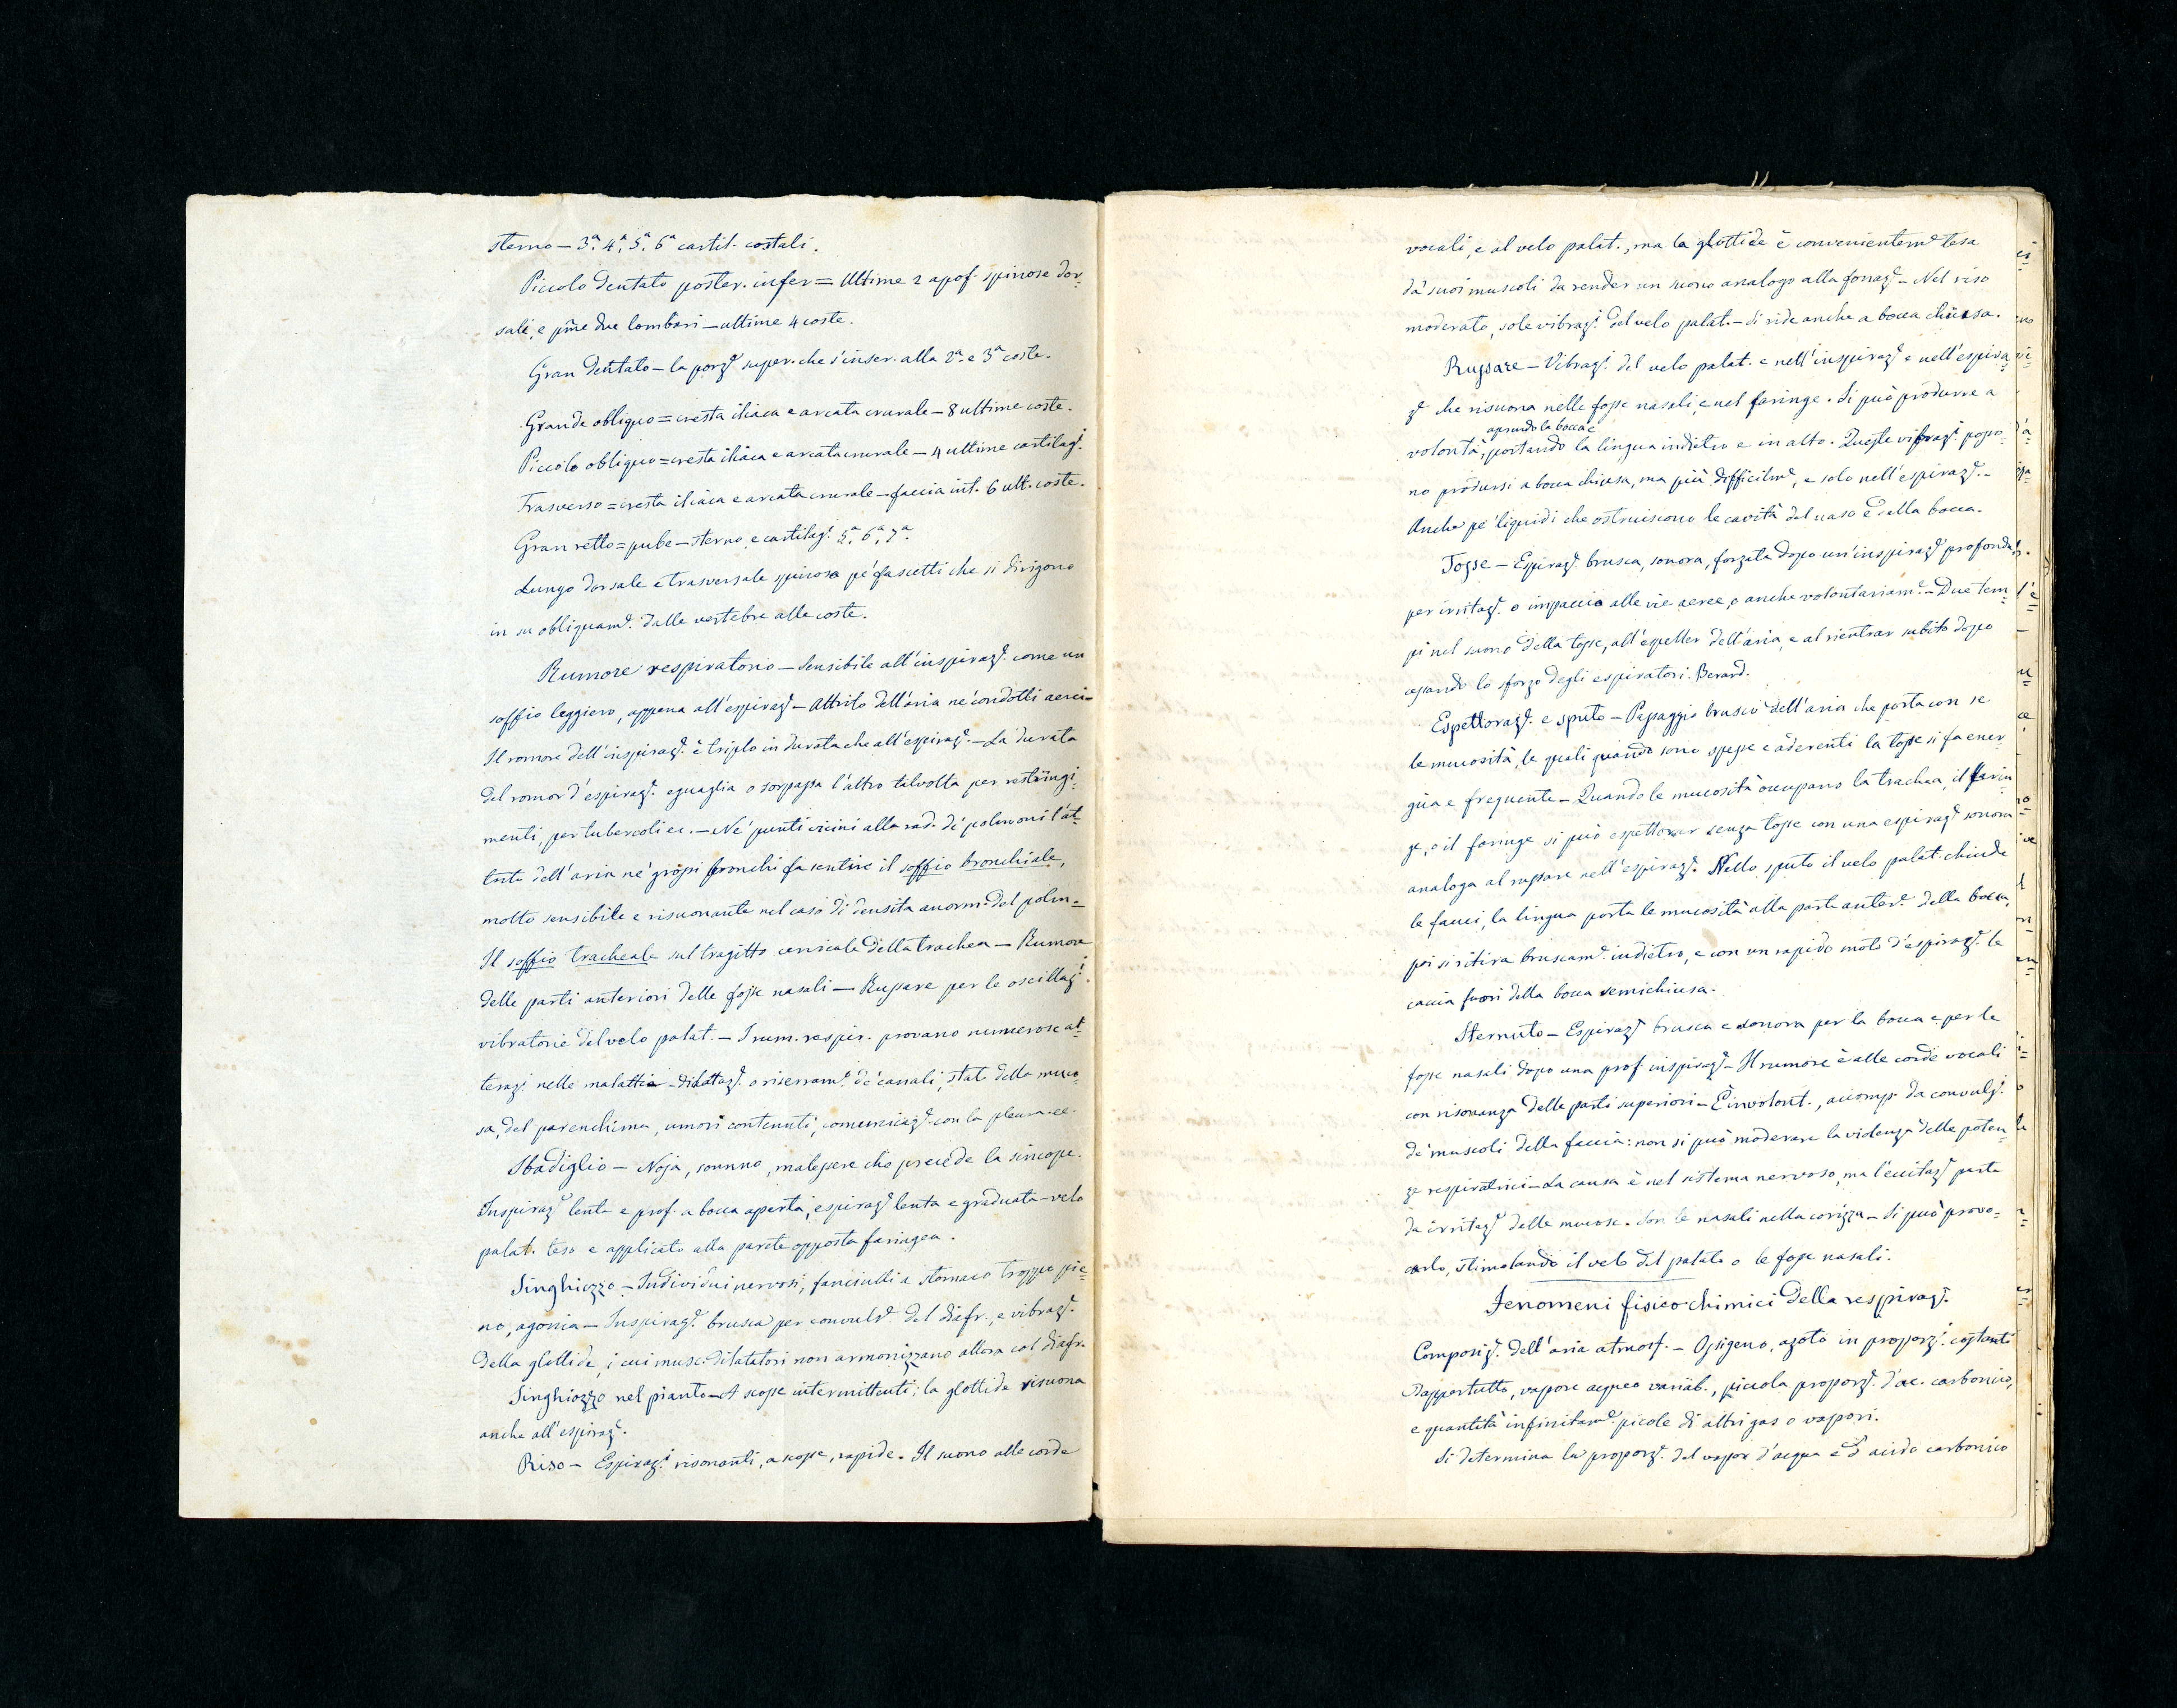 sterno – 3ª. 4ª. 5ª. 6ª cartil. costali.
Piccolo dentato poster. infer = Ultime 2 apof. spinose dor-
sali, e pme due lombari – ultime 4 coste.
Gran dentato – la porze super. che s'inser. alla 2ª. e 3ª coste.
Grande obliquo = cresta iliaca e arcata crurale – 8 ultime coste.
Piccolo obliquo = cresta iliaca e arcata crurale – 4 ultime cartilagi.
Trasverso = cresta iliaca e arcata crurale – faccia int. 6 ult. coste.
Gran retto = pube – sterno, e cartilagi 5ª, 6ª, 7ª
Lungo dorsale e trasversale spinoso pe' fascetti che si dirigono
in su obliquame. dalle vertebre alle coste.
Rumore respiratorio – Sensibile all'inspiraze. come un
soffio leggiero, appena all'espiraze – Attrito dell'aria ne' condotti aerei –
Il romore dell'inspiraze. è triplo in durata che all'espiraze. – La durata
del romor d'espiraze. eguaglia o sorpassa l'altro talvolta per restringi-
menti, per tubercoli ec. – Ne' punti vicini alla rad. de' polmoni l'at-
trito dell'aria ne' grossi bronchi fa sentire il soffio bronchiale,
molto sensibile e risuonante nel caso di densita anorm. del polm –
Il soffio tracheale sul tragitto cervicale della trachea – Rumore
delle parti anteriori delle fosse nasali – Russare per le oscillazi.
vibratorie del velo palat. – I rum. respir. provano numerose al-
terazi nelle malattie – dilataze. o riserrame. de' canali, stato della muco-
sa, del parenchima, umori contenuti, comunicaze. con la pleura ec.
Sbadiglio – Noja, sonnno, malessere che precede la sincope.
Inspiraze lenta e prof. a bocca aperta, espiraze lenta e graduata – velo
palat. teso e applicato alla parete opposta faringea.
Singhiozzo – Individui nervosi, fanciulli a stomaco troppo pie-
no, agonia – Inspiraze. brusca per convulse. del diafr., e vibraze.
della glottide, i cui musc. dilatatori non armonizzano allora col diafr.
Singhiozzo nel pianto – A scosse intermittenti; la glottide risuona
anche all'espiraze.
Riso – Espirazi risonanti, a scosse, rapide. Il suono alle corde
vocali, e al velo palat., ma la glottide è convenienteme tesa
da' suoi muscoli da render un suono analogo alla fonaze – Nel riso
moderato, sole vibrazi del velo palat. – Si ride anche a bocca chiusa.
Russare – Vibrazi. del velo palat. e nell'inspiraze e nell'espira-
ze che risuona nelle fosse nasali, e nel faringe. Si può produrre a
aprendo la bocca e
volontà, portando la lingua indietro e in alto. Queste vibrazi. posso-
no prodursi a bocca chiusa, ma più difficilme, e solo nell'espiraze. –
Anche pe' liquidi che ostruiscono le cavità del naso e della bocca.
Tosse – Espiraze. brusca, sonora, forzata dopo un'inspiraze profonda,
per irritaze. o impaccio alle vie aeree, o anche volontariame. – Due tem-
pi nel suono della tosse, all'espeller dell'aria, e al rientrar subito dopo
cessando lo sforzo degli espiratori. Berard.
Espettoraze. e sputo – Passaggio brusco dell'aria che porta con se
le mucosità, le quali quando sono spesse e aderenti la tosse si fa ener-
gica e frequente – Quando le mucosità occupano la trachea, il larin-
ge, o il faringe si può espettorar senza tosse con una espiraze sonora
analoga al russare nell'espiraze. Nello sputo il velo palat. chiude
le fauci, la lingua porta le mucosità alla parte antere. della bocca,
poi si ritira bruscame. indietro, e con un rapido moto d'espiraze. le
caccia fuori della bocca semichiusa.
Sternuto – Espiraze brusca e sonora per la bocca e per le
fosse nasali dopo una prof. inspiraze – Il rumore è alle corde vocali
con risonanza delle parti superiori – È involont., accomp. da convulsi.
de' muscoli della faccia: non si può moderare la violenza delle poten-
ze respiratrici – La causa è nel sistema nervoso, ma l'eccitaze parte
da irritaze delle mucose. Son le nasali nella corizza – Si può provo-
carlo, stimolando il velo del palato o le fosse nasali.
Fenomeni fisico-chimici della respiraze.
Composize. dell'aria atmosf. – Ossigeno, azoto in proporzi. costanti
dappertutto, vapore acqueo variab., piccola proporze. d'ac. carbonico,
e quantità infinitame. picole di altri gas o vapori.
Si determina la proporze. del vapor d'acqua e d'acido carbonico